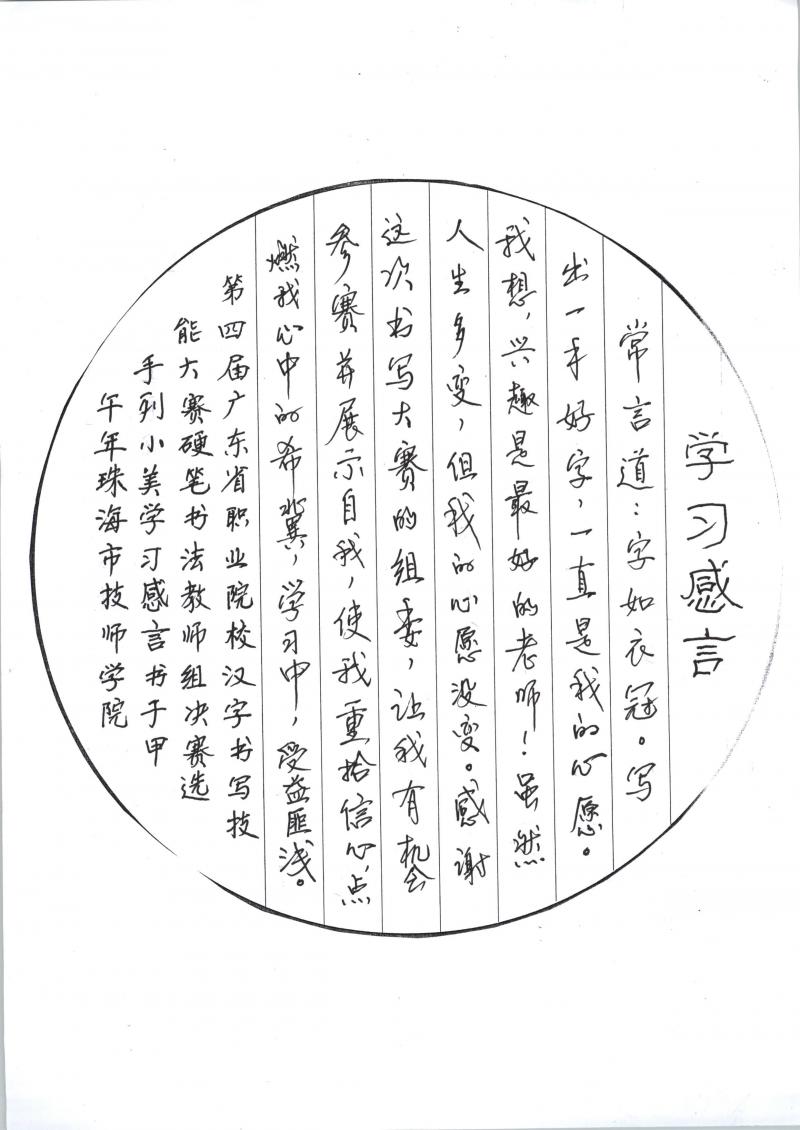 学习感言
常言道：字如衣冠。写
出一手好字，一直是我的心愿。
我想，兴趣是最好的老师！虽然
人生多变，但我的心愿没变。感谢
这次书写大赛的组委，让我有机会
参赛并展示自我，使我重拾信心，点
燃我心中的希冀，学习中，受益匪浅。
第四届广东省职业院校汉字书写技
能大赛硬笔书法教师组决赛选
手列小美学习感言书于甲
午年珠海市技师学院